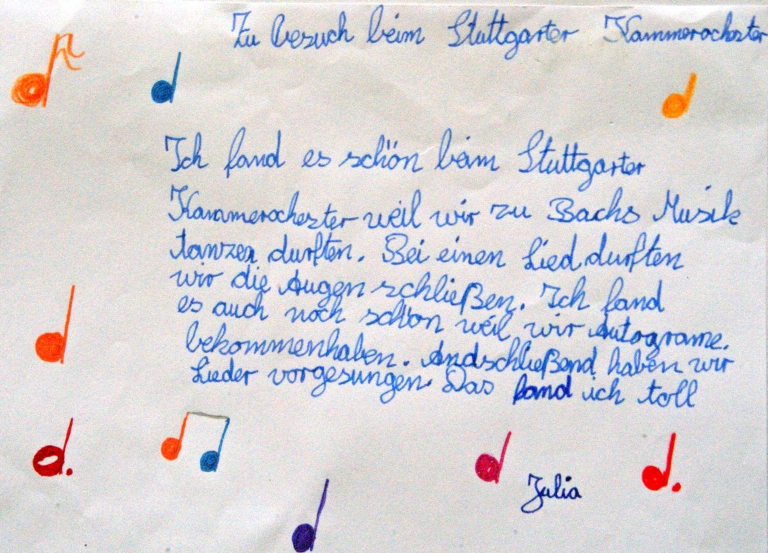 Zu besuch beim Stuttgarter Kammerochester
Ich fand es schön beim Stuttgarter
Kammerochester weil wir zu Bachs Musik
tanzen durften. Bei einen Lied durften
wir die Augen schließen. Ich fand
es auch noch schön weil wir Autograme.
bekommenhaben. Andschließend haben wir
Lieder vorgesungen. Das fand ich toll
Julia